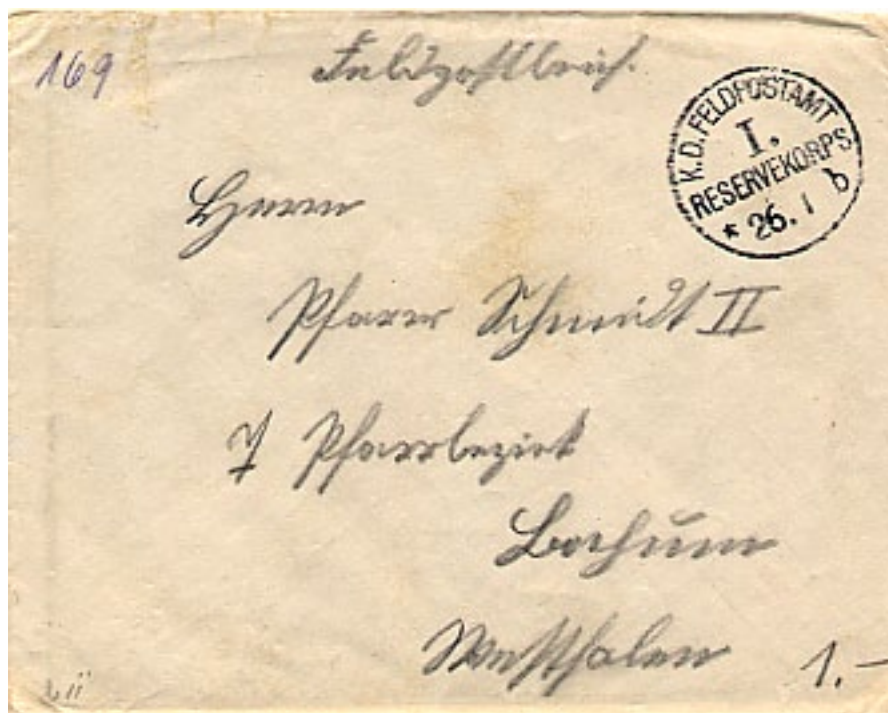 169
Feldpostbrief.
K.D. FELDPOSTAMT
I.
RESERVEKORPS
* 26. 1 b
Herrn
Pfarrer Schmidt II
7 Pfarrbezirk
Bochum
Westfalen
1.-